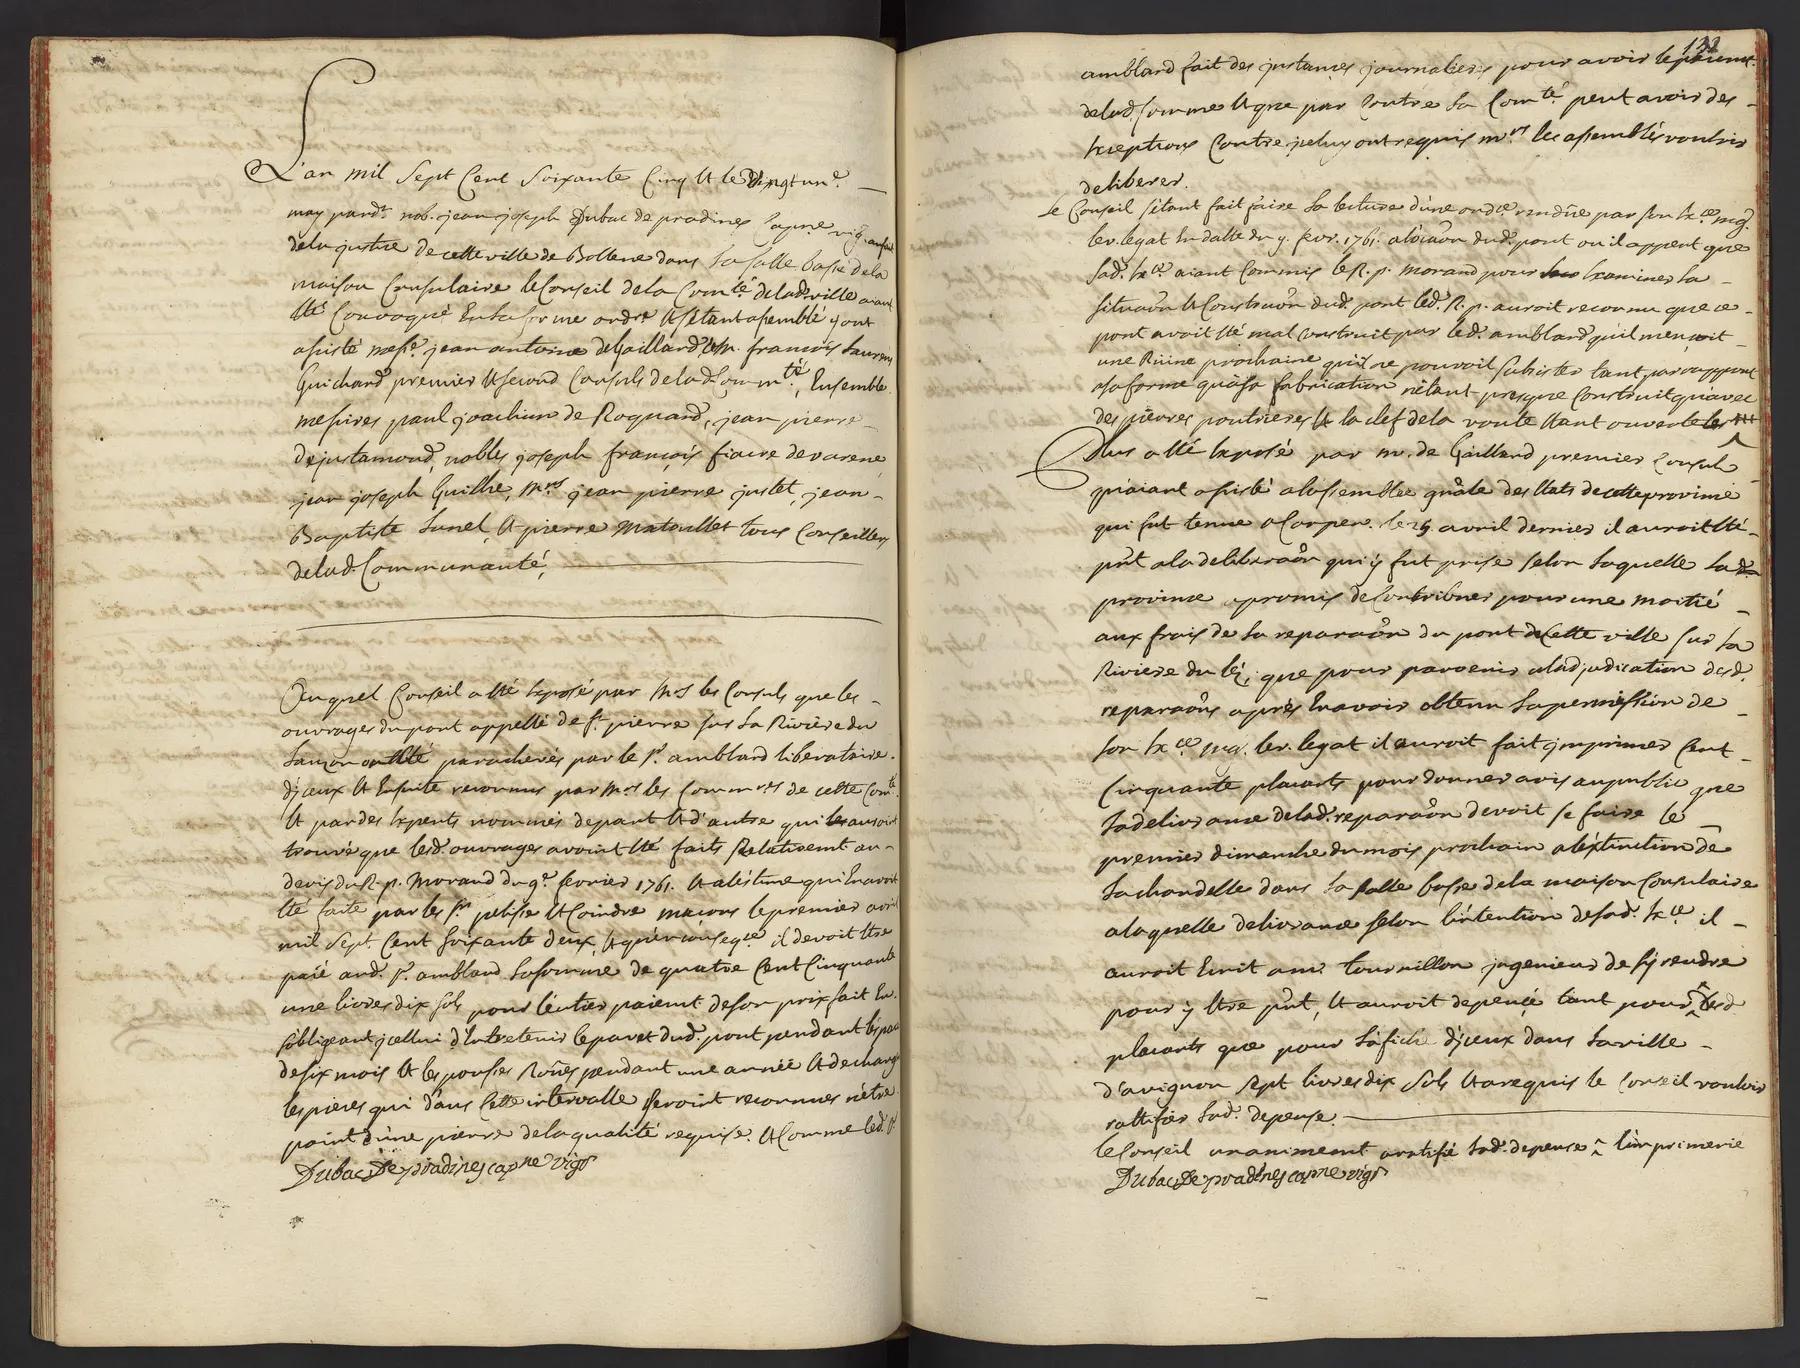 L'an mil sept cent soixante cinq et le vingt un^e.
may pard^t. nob. jean joseph Dubac de pradines Cap^ne. vig.
de la justice de cette ville de Bollene dans la salle basse de la
maison Consulaire le Conseil de la Com^té. de lad. ville aiant
été Convoqué en la forme ordre et s'étant assemblé y ont
assisté mess^e. jean antoine de Gaillard et m. françois laurens
Guichard premier et second Consuls de lad. Comm^té, Ensemble
messires paul joachim de Roquard, jean pierre
de justamond, nobles joseph françois fiacre de varene
jean joseph Guilhe, m^rs jean pierre justet, jean
Baptiste lunel, et pierre matoullet tous Conseillers
de lad. Communauté,
Auquel Conseil a été exposé par m^rs les Consuls que les
ouvrages du pont appellé de s^t. pierre sur la Rivière du
lauzon ont été parachevés par le s^r. amblard liberataire
d'jceux et Ensuite reconnus par m^rs les Comm^res de cette Com^té.
et par des experts nommés de part et d'autre qui les auroint
trouvé que lesd. ouvrages avoint été faits Relativem^t au
devis du R. p. Morand du 9^e. fevrier 1761. et a l'éstime qui En avoit
été faite par les s^rs pelisse et Coindre maçons le premier avril
mil sept. Cent soixante deux, et qu'en conseq^ce il devoit être
paié aud. s^r. amblard la somme de quatre Cent Cinquante
une livres dix sols pour l'entier paiem^t de son prix fait En
s'obligeant jcellui d'Entretenir le pavet dud. pont pendant l'espace
de six mois et les pousses Rones pendant une année et de changer
les pieres qui dans Cette intervalle seroint reconnues n'être
point d'une pierre de la qualité requise. et Comme led. s^r
Dubac De pradines capne vigr
132
amblard fait des jnstances journalieres pour avoir le paiem^t.
de lad. somme et que par Contre la Com^té. peut avoir des
exceptions Contre jceluy ont requis m^rs les assemblés vouloir
deliberer.
le Conseil s'étant fait faire la lecture d'une ord^ce. rendüe par son ex^ce mg^r.
le v. legat En datte du 9. fevr. 1761. a l'ocaõn dud. pont ou il appert que
sad. ex^ce. aiant Commis le R. p. morand pour examiner la
situaõn et Construcõn dud. pont led. R. p. auroit reconnu que ce
pont avoit été mal construit par led. amblard qu'il menaçoit
une Rüine prochaine qu'il ne pouvoit subsister tant par rapport
a sa forme qu'a sa fabrication n'étant presque Construit qu'avec
des pierres poutrieres et la clef de la voute étant ouverte
Plus a été exposé par m. de Gaillard premier Consul
qu'aiant assisté a l'assemblée gñale des États de cette province
qui fut tenue a Carpen. le 29. avril dernier il auroit été
pñt a la deliberaõn qui y fut prise selon laquelle lad.
province a promis de Contribuer pour une moitié
aux frais de la reparaõn du pont de Cette ville sur la
Riviere du léz, que pour parvenir a l'adjudication desd.
reparaõns après En avoir obtenu la permission de
son ex^ce mg^r. le v. legat il auroit fait jmprimer Cent
Cinquante placarts pour donner avis au public que
la delivrance de lad. reparaõn devoit se faire le
premier dimanche du mois prochain a l'éxtinction de
la chandelle dans la salle basse de la maison Consulaire
a laquelle delivrance selon l'intention de sad. ex^ce il
auroit Ecrit a m^r. tournillon jngenieur de s'y rendre
pour y être pñt, et auroit depencé tant pour lesd
placarts que pour l'afiche d'jceux dans la ville
d'avignon sept livres dix sols et a requis le Conseil vouloir
rattifier lad. depense.
le Conseil unanimement a ratifié lad. depense l'imprimerie
Dubac De pradines capne vigr